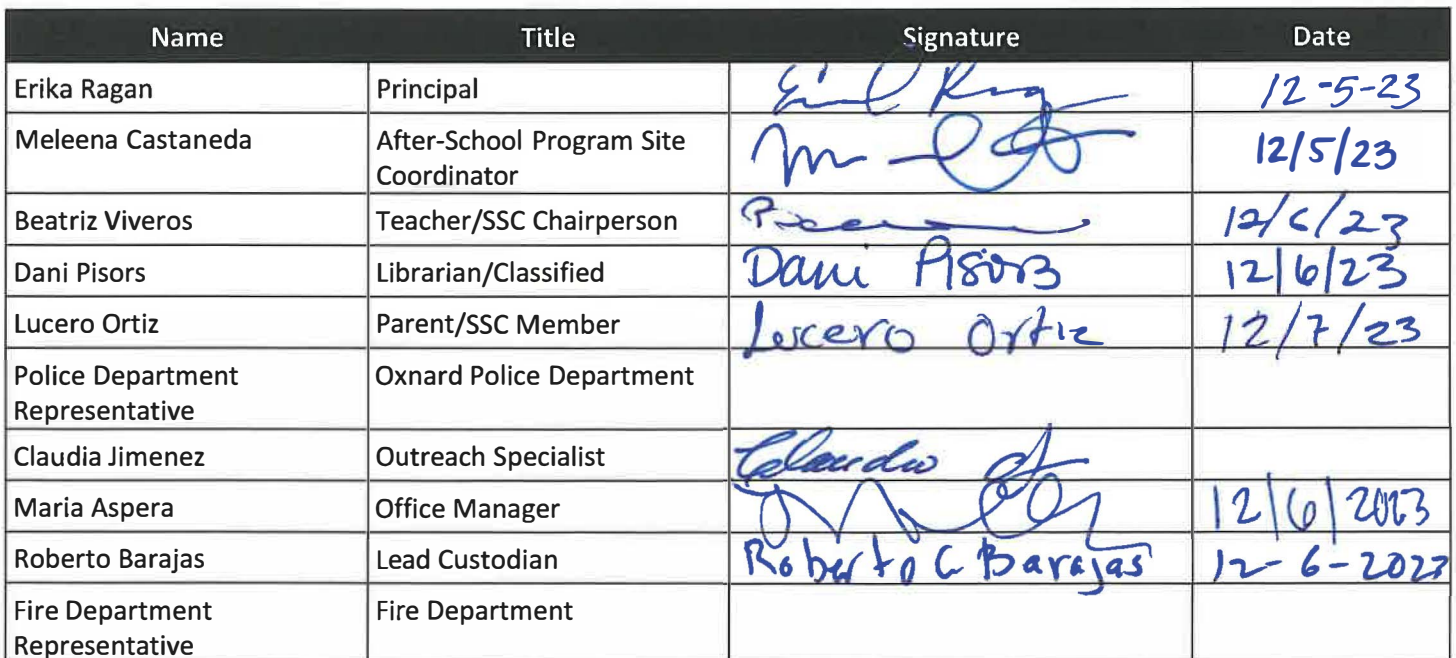 Name Title Signature Date
Erika Ragan Principal 12-5-23
Meleena Castaneda After-School Program Site 12/5/23
Coordinator
Beatriz Viveros Teacher/SSC Chairperson 12/6/23
Dani Pisors Librarian/Classified Dani Pisors 12/6/23
Lucero Ortiz Parent/SSC Member Lucero Ortiz 12/7/23
Police Department Oxnard Police Department
Representative
Claudia Jimenez Outreach Specialist Claudia
Maria Aspera Office Manager 12/6/2023
Roberto Barajas Lead Custodian Roberto C Barajas 12-6-2023
Fire Department Fire Department
Representative